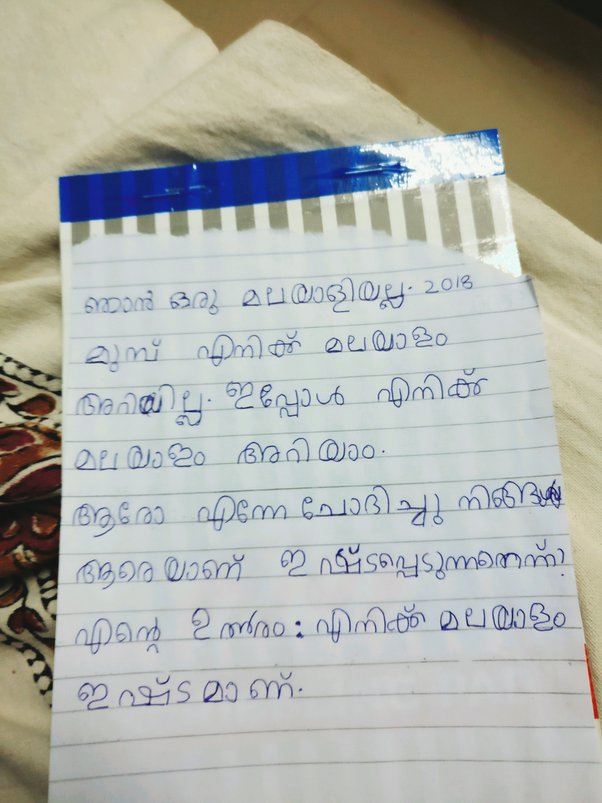 ഞാൻ ഒരു മലയാളിയല്ല. 2018
മുമ്പ് എനിക്ക് മലയാളം
അറിയില്ല. ഇപ്പോൾ എനിക്ക്
മലയാളം അറിയാം.
ആരോ എന്നേ ചോദിച്ചു നിങ്ങൾ
ആരെയാണ് ഇഷ്ടപ്പെടുന്നതെന്ന്?
എന്റെ ഉത്തരം: എനിക്ക് മലയാളം
ഇഷ്ടമാണ്.